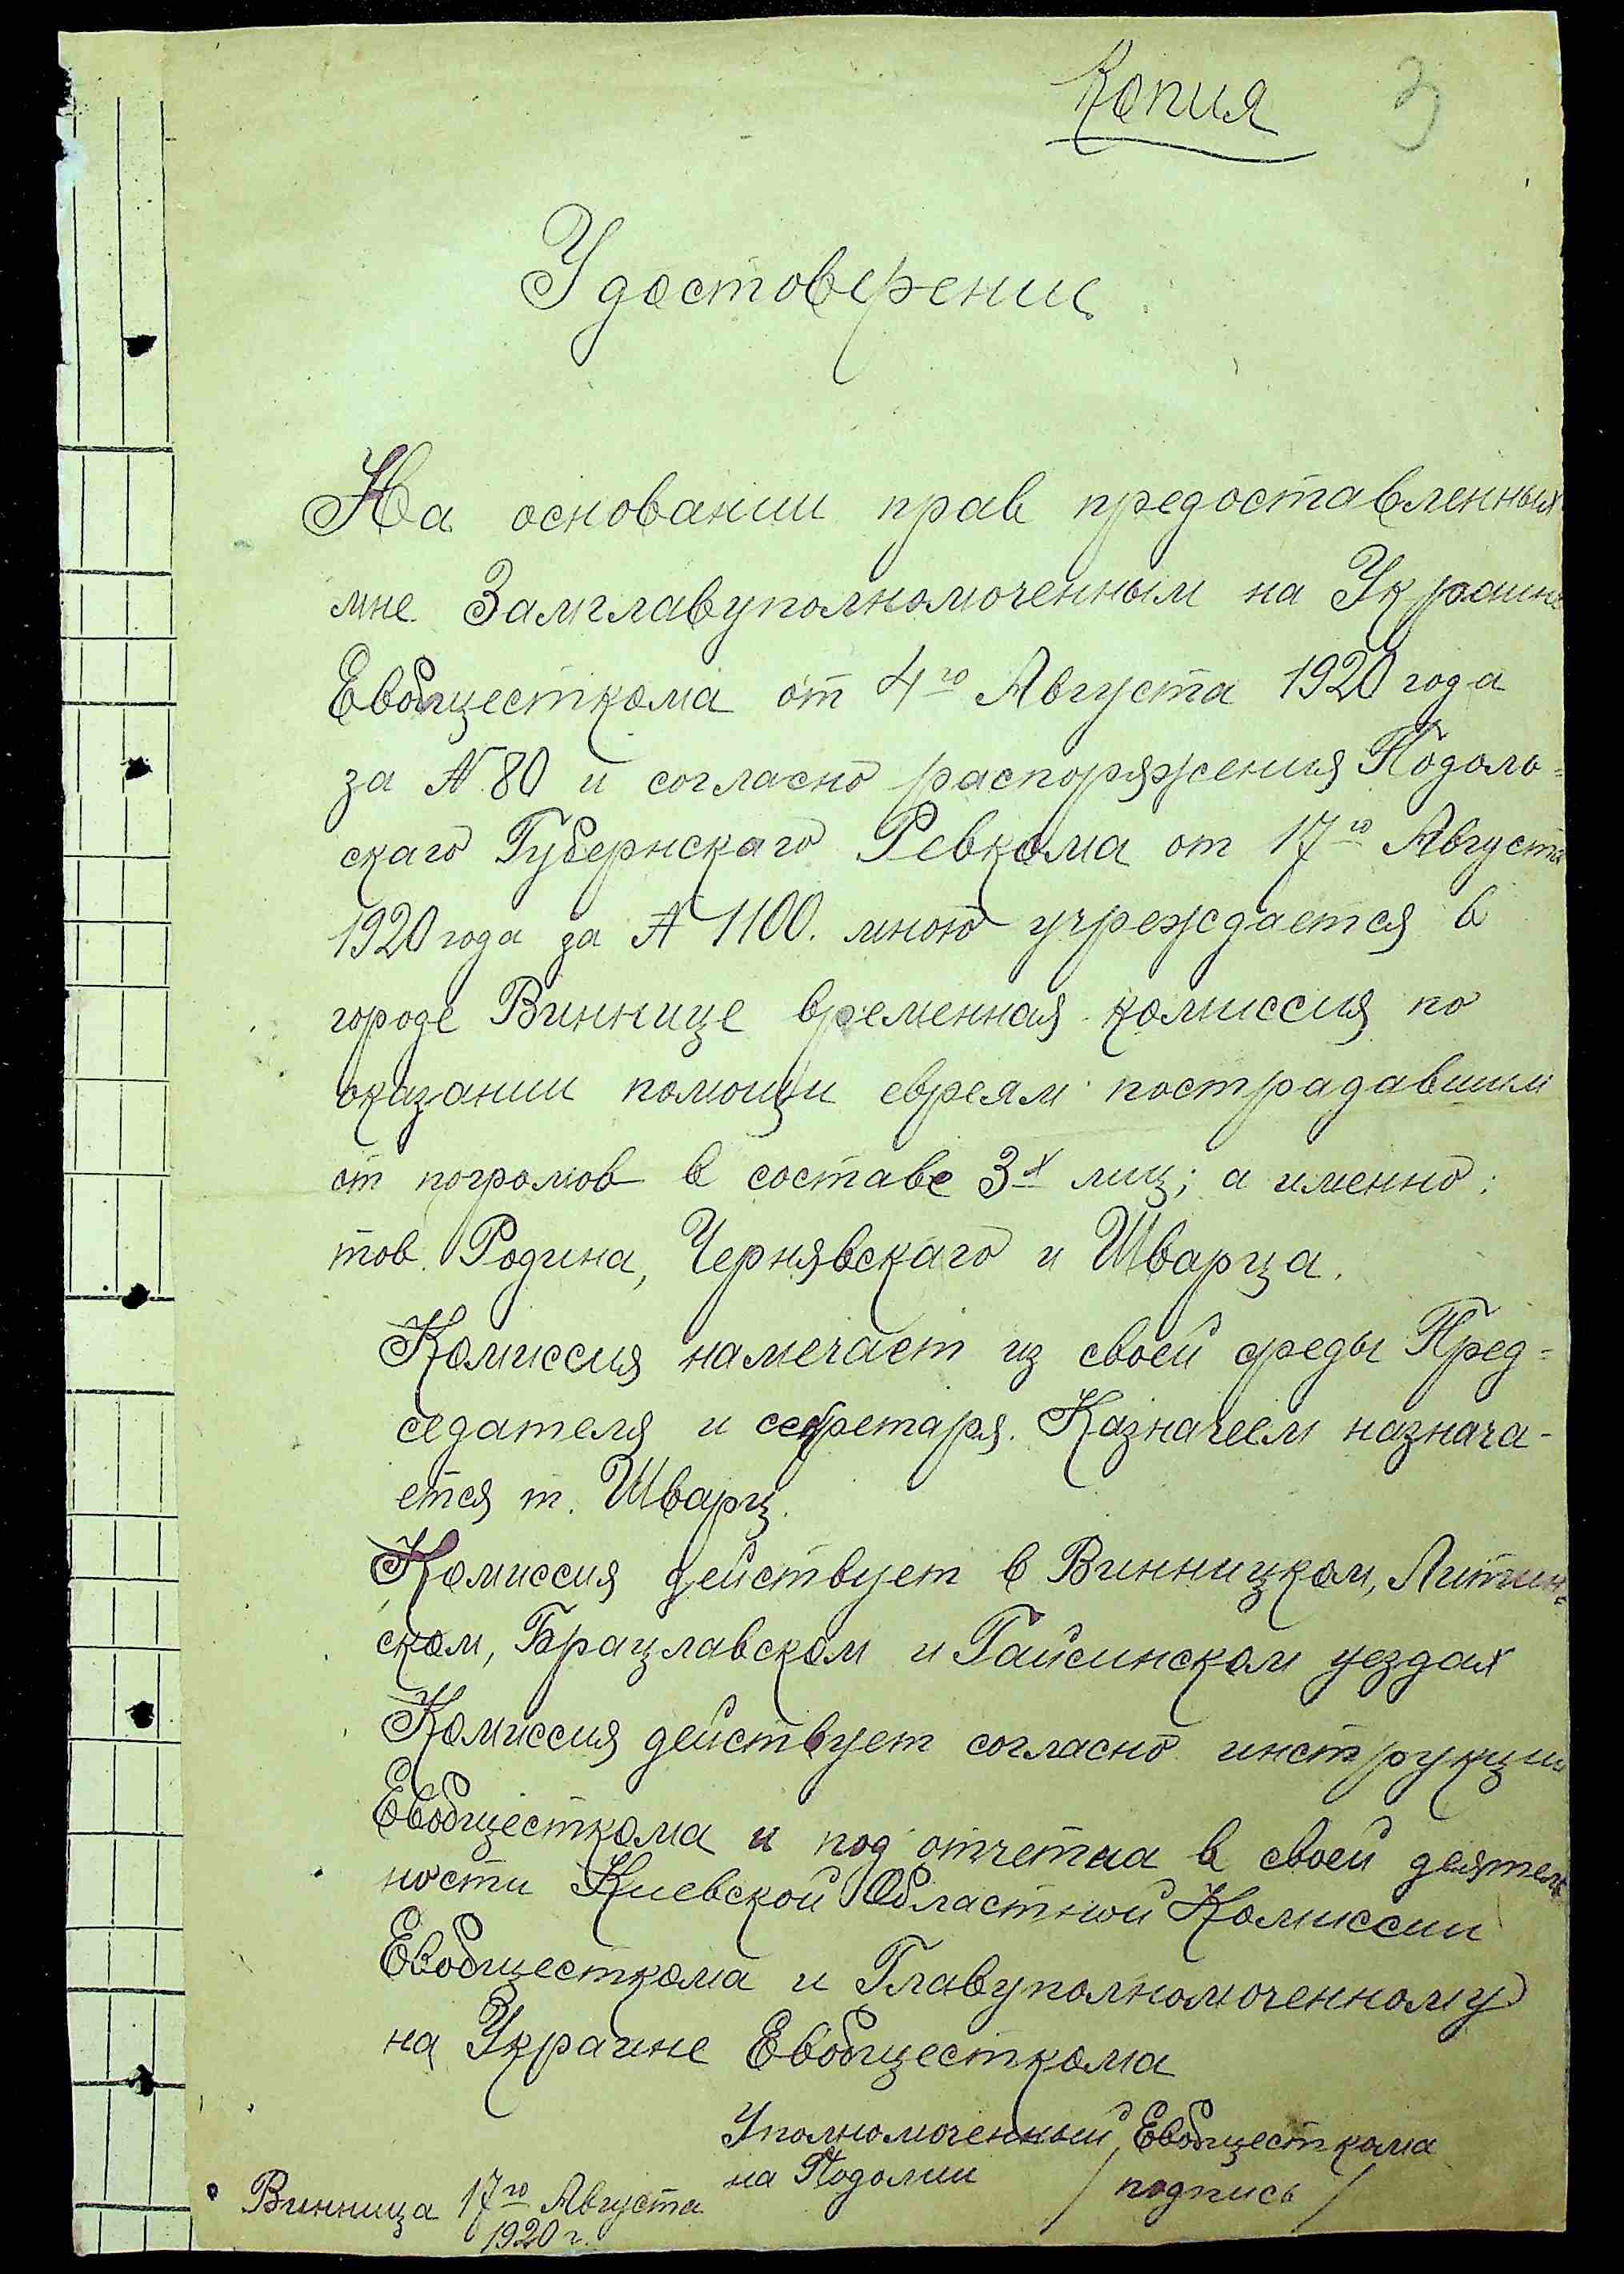 Копия 3
Удостоверение
На основании прав предоставленных
мне Замглавуполномоченным на Украине
Евобщесткома от 4го Августа 1920 года
за № 80 и согласно распоряжения Подоль=
скаго Губернскаго Ревкома от 17го Августа
1920 года за № 1100. мною учреждается в
городе Виннице временная комиссия по
оказании помощи евреям пострадавшим
от погромов в составе 3х лиц; а именно:
тов. Родина, Чернявскаго и Шварца.
Комиссия намечает из своей среды Пред=
седателя и секретаря. Казначеем назнача-
ется т. Шварц.
Комиссия действует в Винницком, Литин=
ском, Брацлавском и Гайсинском уездах
Комиссия действует согласно инструкции
Евобщесткома и под отчетна в своей деятель
ности Киевской Областной Комиссии
Евобщесткома и Главуполномоченному
на Украине Евобщесткома
Уполномоченный Евобщесткома
на Подолии / подпись /
Винница 17го Августа
1920 г.